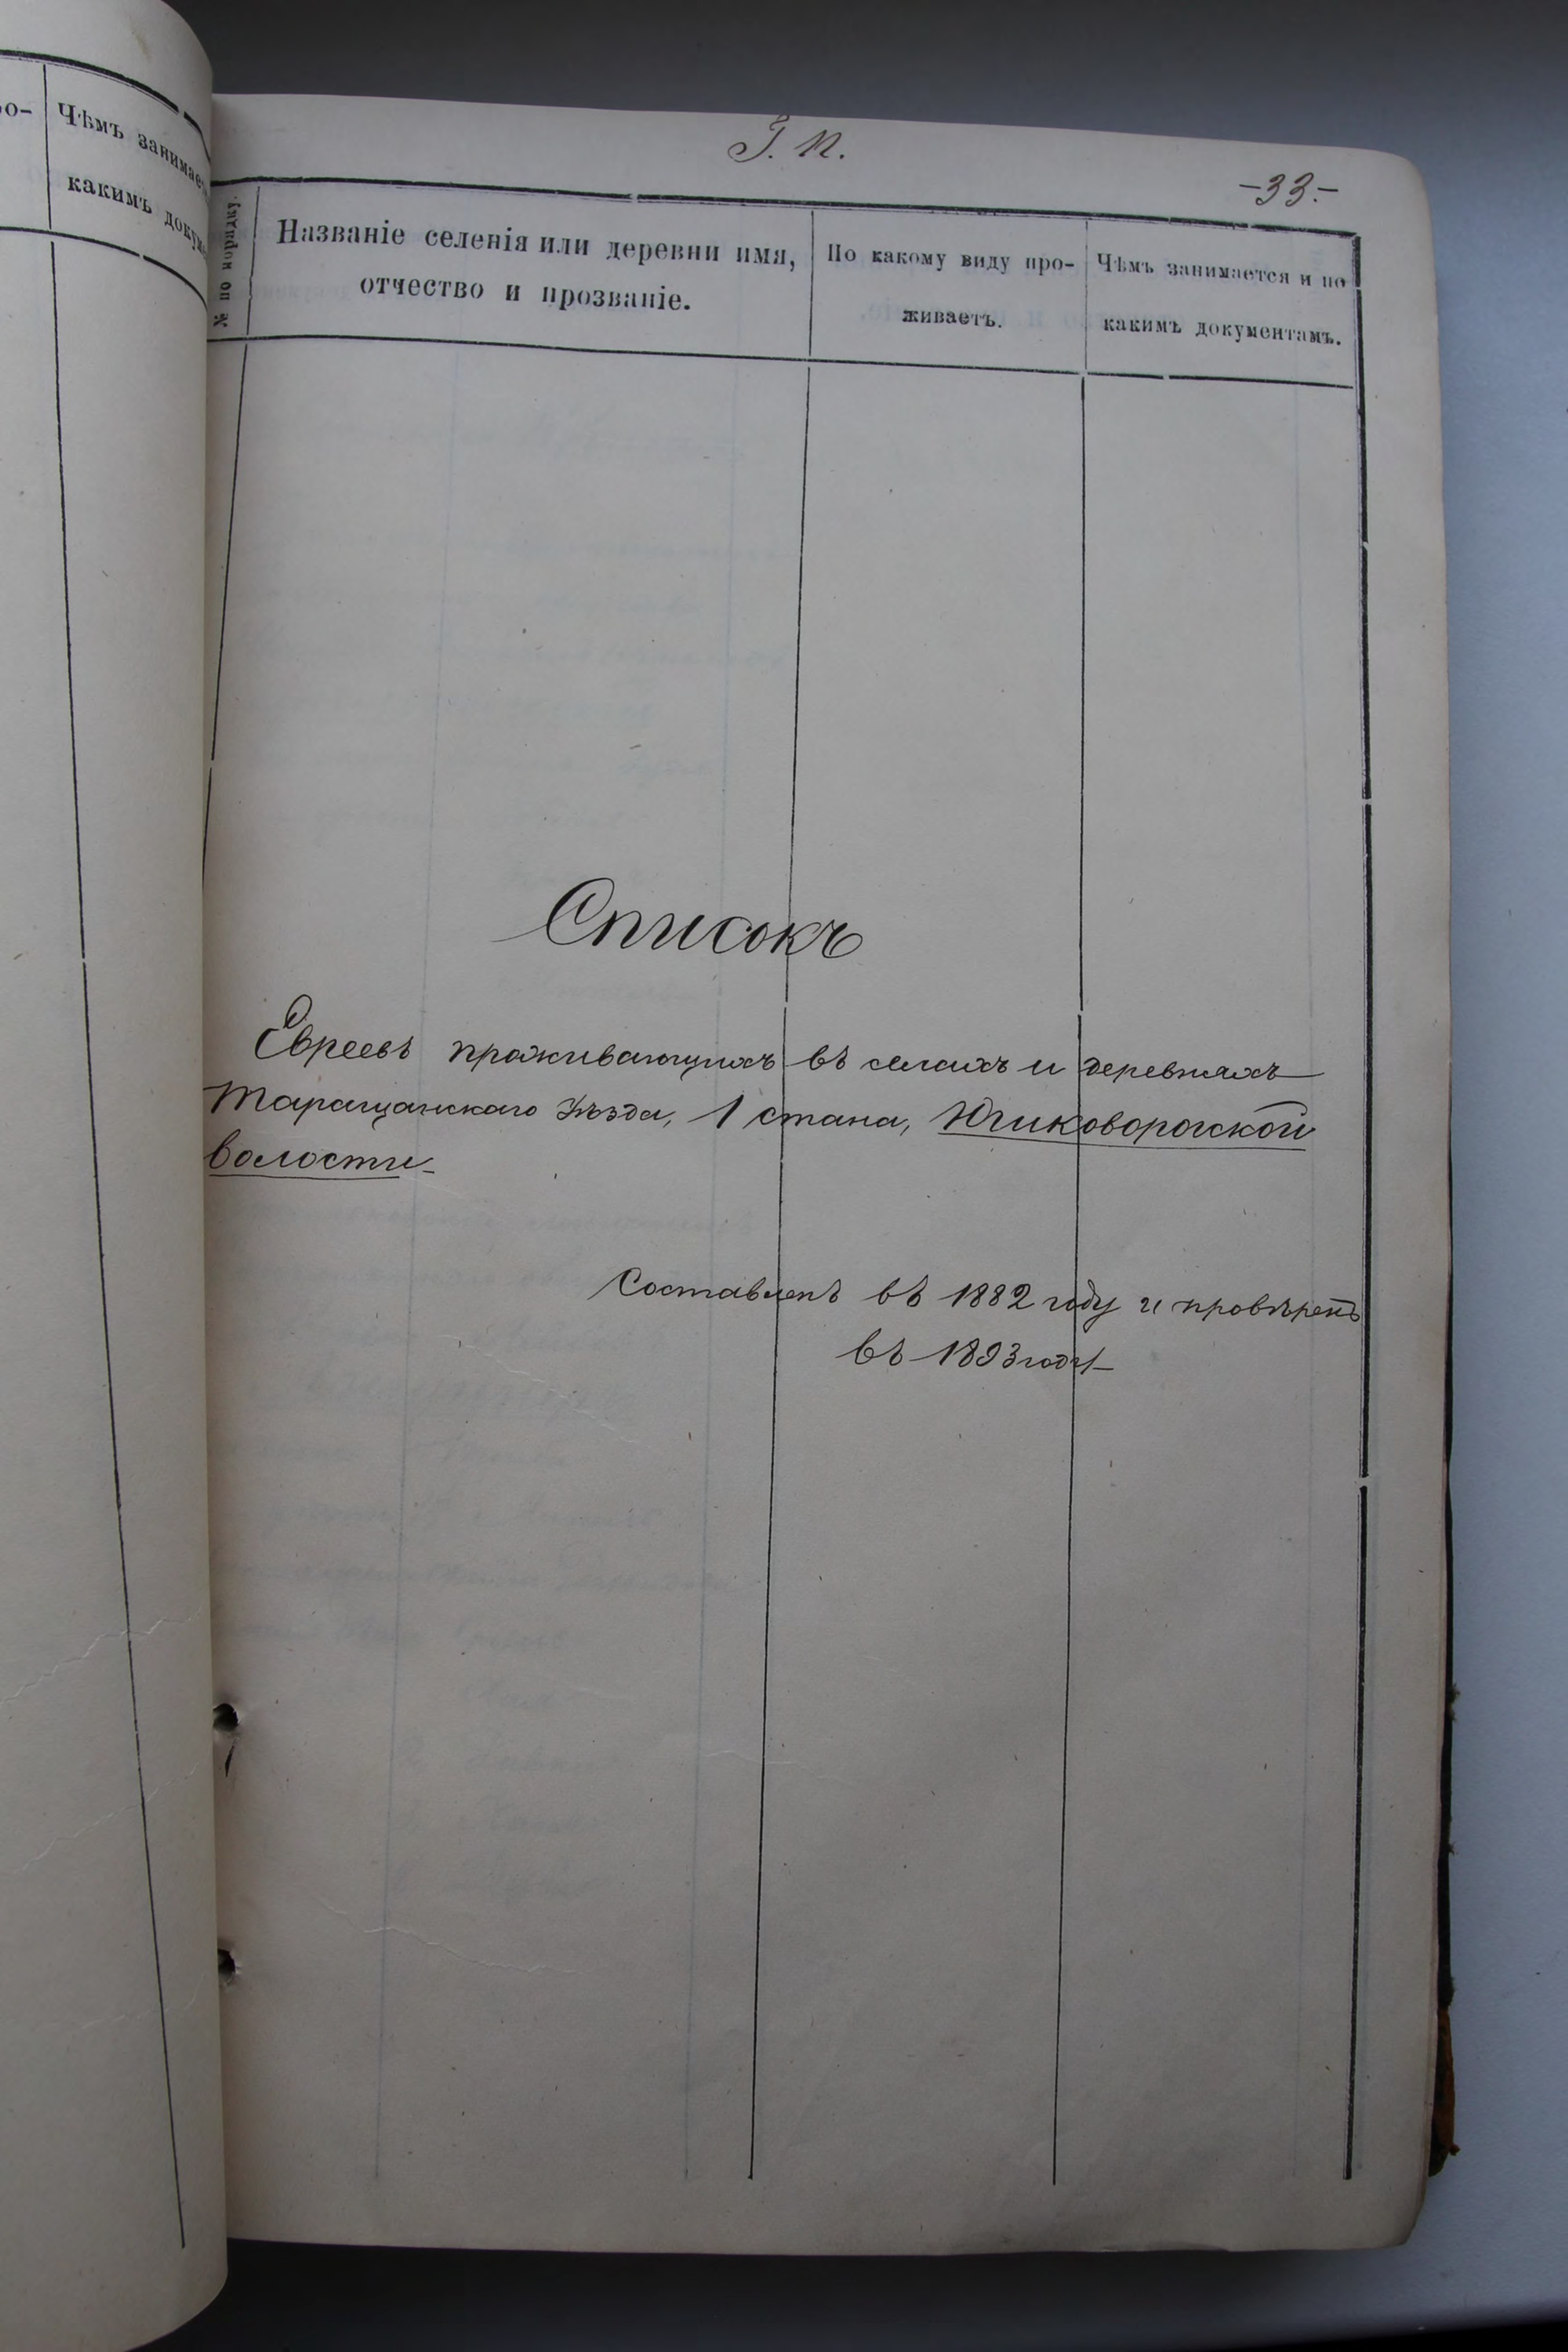 о-
Чѣмъ занимает
какимъ докум
Г. П.
-33.-
№ по порядку.
Названіе селенія или деревни имя,
отчество и прозваніе.
По какому виду про-
живаетъ.
Чѣмъ занимается и по
какимъ документамъ.
Списокъ
Евреевъ проживающихъ въ селахъ и деревняхъ
Таращанскаго Уѣзда, 1 стана,
волости
Составленъ въ 1882 году и провѣренъ
въ 1893 году